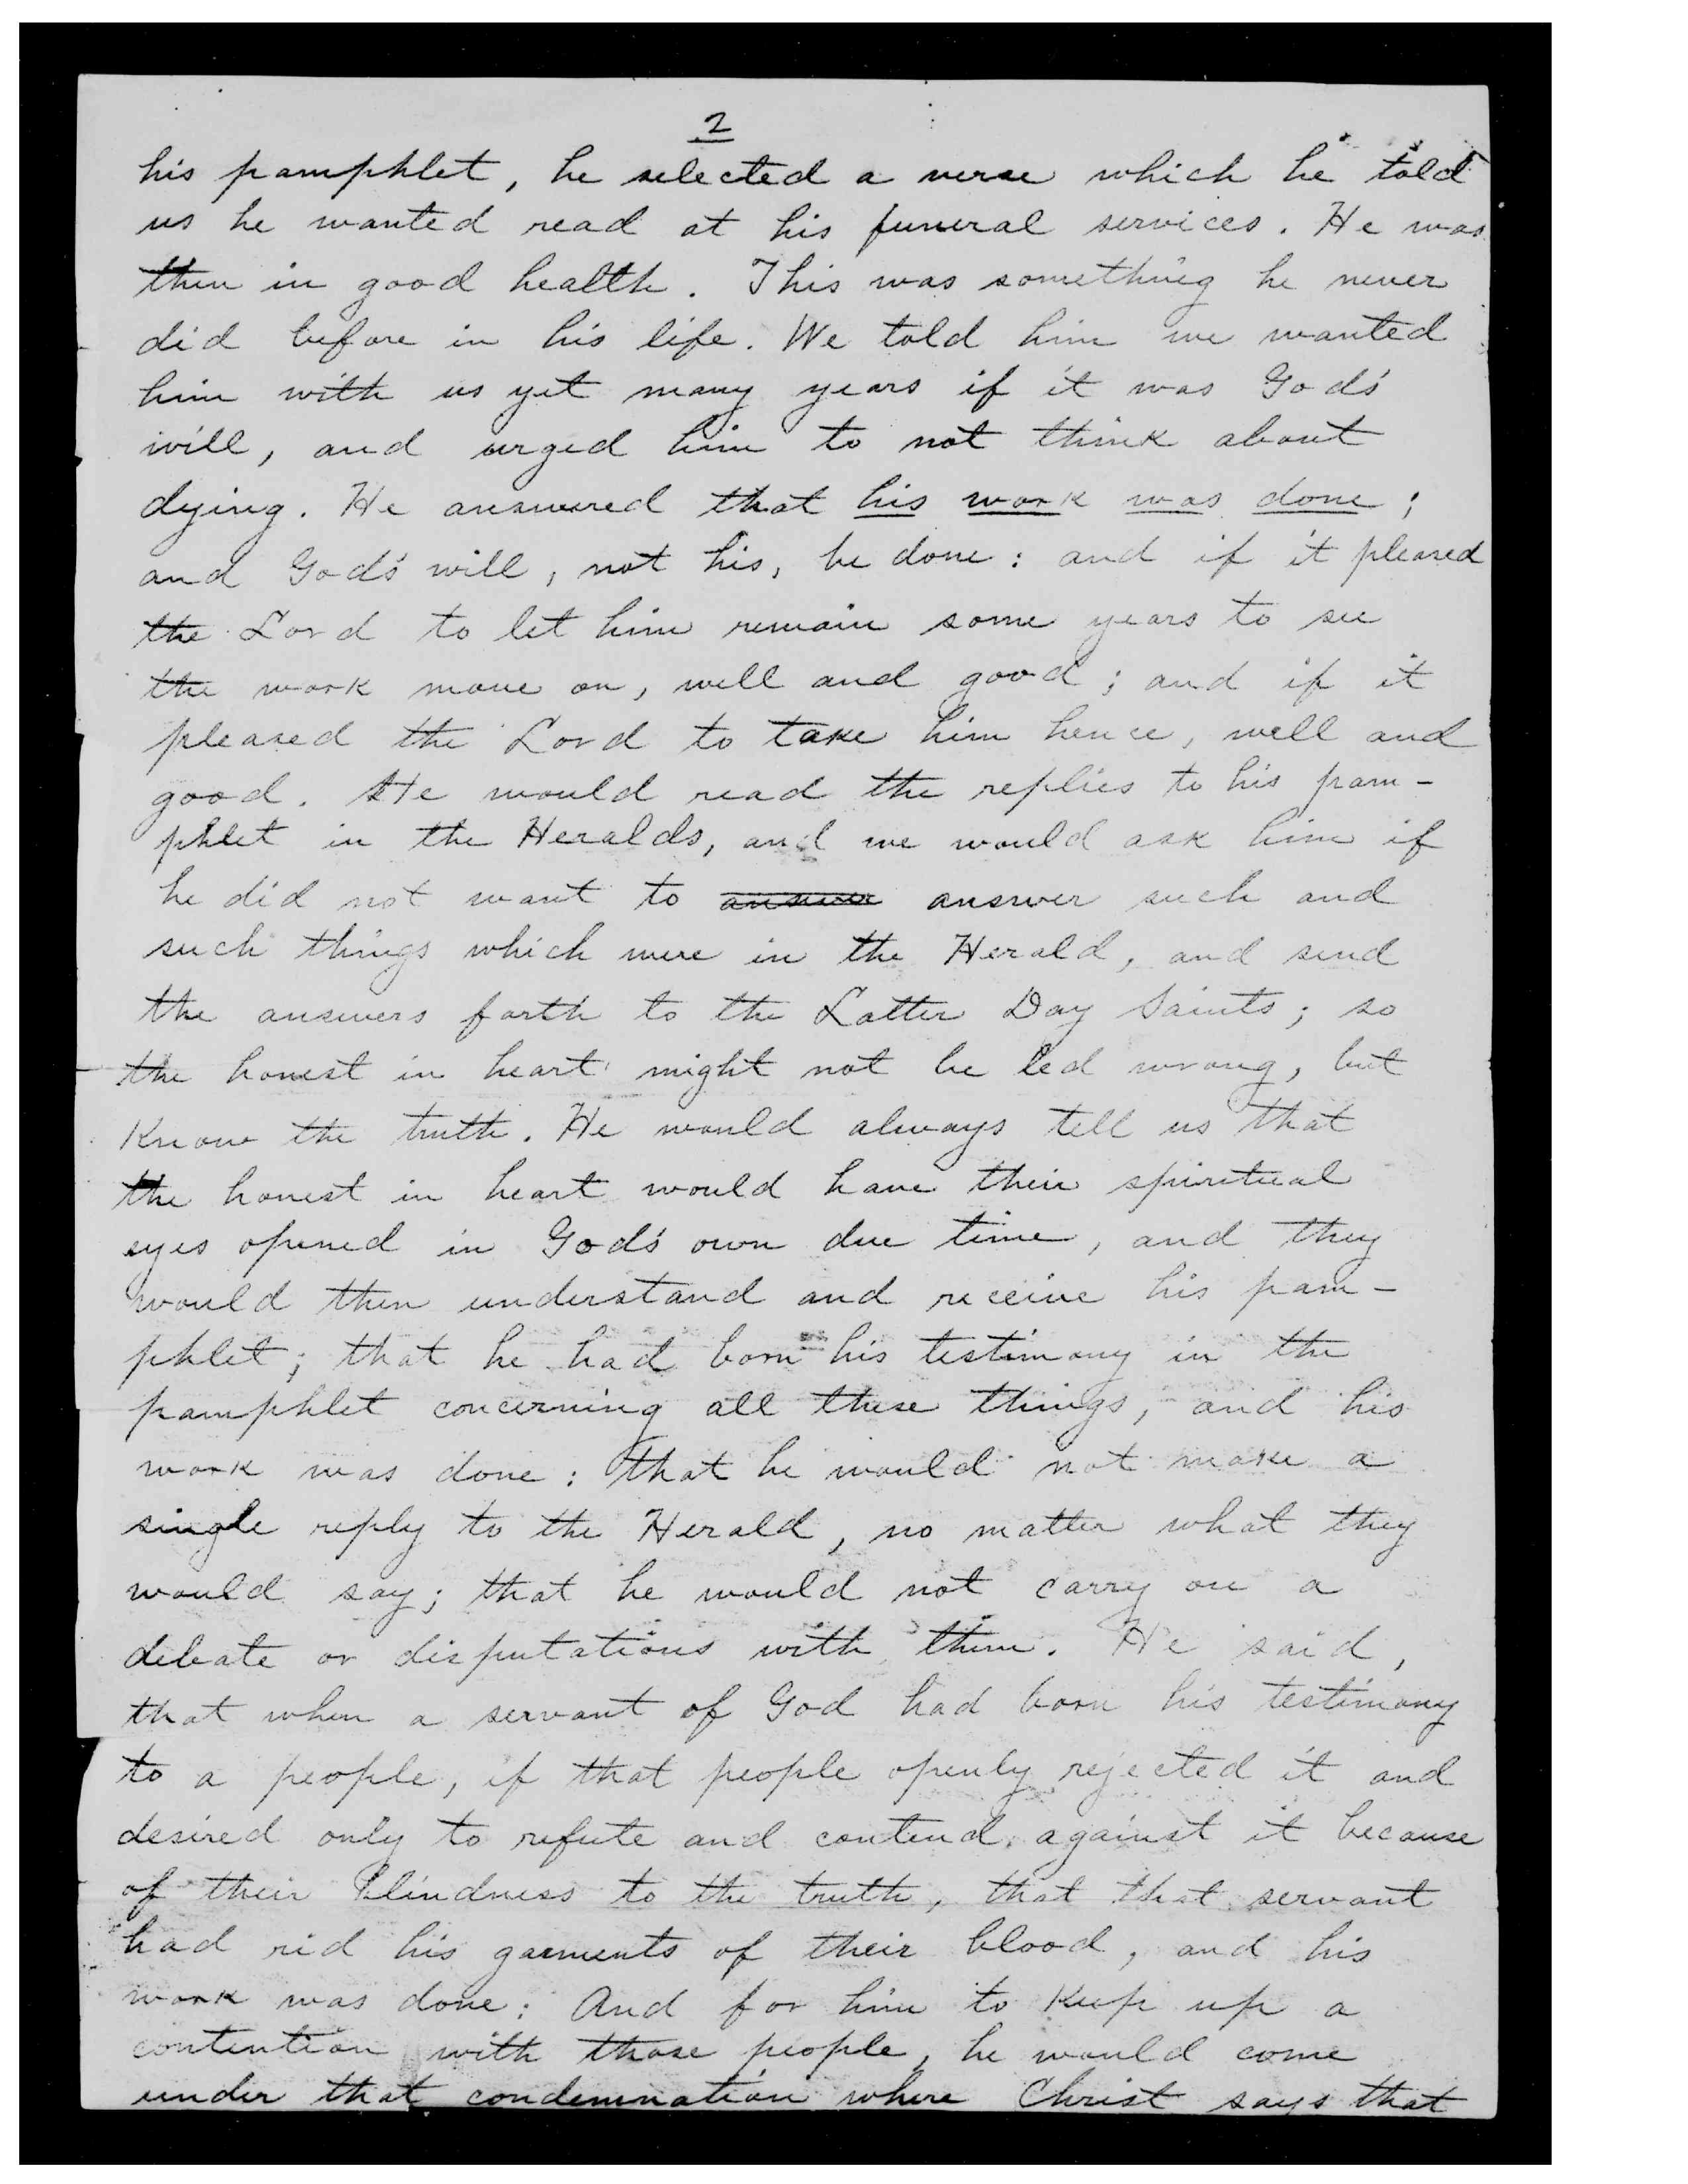 2
his pamphlet, he selected a verse which he told
us he wanted read at his funeral services. He was
then in good health. This was something he never
did before in his life. We told him we wanted
him with us yet many years if it was God's
will, and urged him to not think about
dying. He answered that his work was done;
and God's will, not his, be done: and if it pleased
the Lord to let him remain some years to see
the work move on, well and good; and if it
pleased the Lord to take him hence, well and
good. He would read the replies to his pam-
phlet in the Heralds, and we would ask him if
he did not want to answer answer such and
such things which were in the Herald, and send
the answers forth to the Latter Day Saints; so
the honest in heart might not be led wrong, but
know the truth. He would always tell us that
the honest in heart would have their spiritual
eyes opened in God's own due time, and they
would then understand and receive his pam-
phlet; that he had born his testimony in the
pamphlet concerning all these things, and his
work was done: that he would not make a
single reply to the Herald, no matter what they
would say; that he would not carry on a
debate or disputations with them. He said,
that when a servant of God had born his testimony
to a people, if that people openly rejected it and
desired only to refute and contend against it because
of their blindness to the truth, that that servant
had rid his garments of their blood, and his
work was done: And for him to keep up a
contention with those people, he would come
under that condemnation where Christ says that